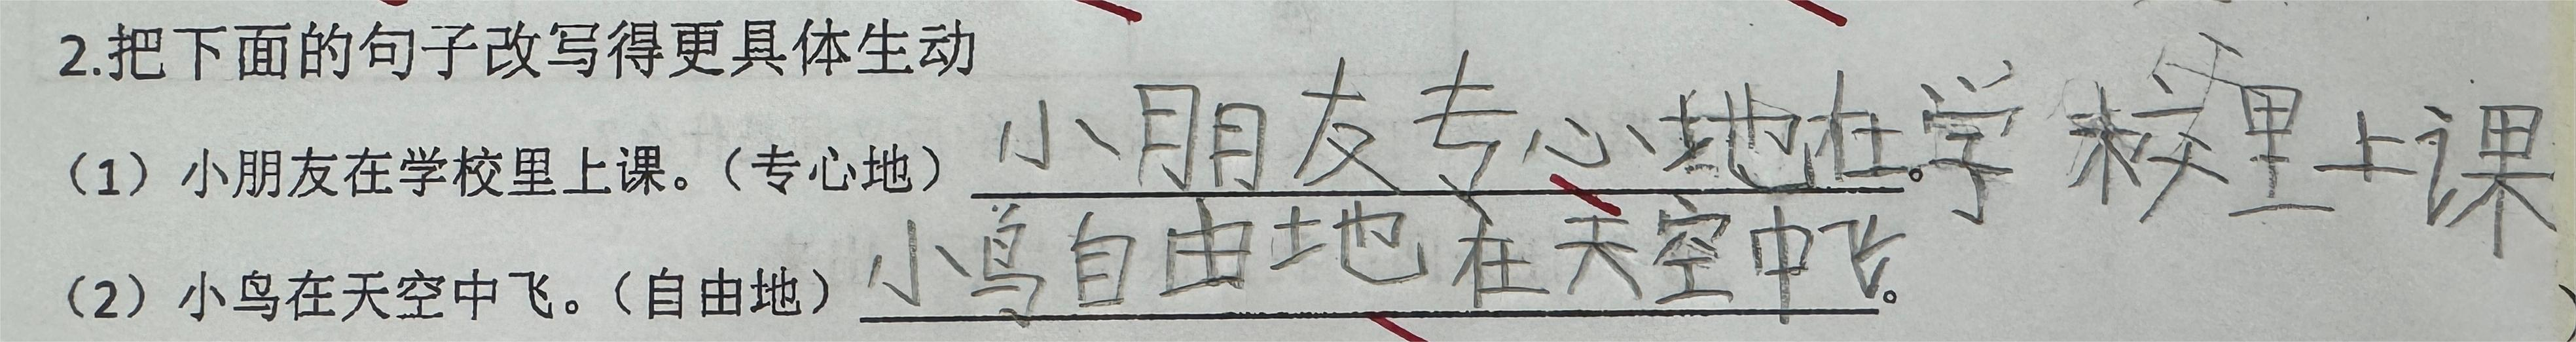 2.把下面的句子改写得更具体生动
（1）小朋友在学校里上课。（专心地）小朋友专心地在学校里上课。
（2）小鸟在天空中飞。（自由地）小鸟自由地在天空中飞。